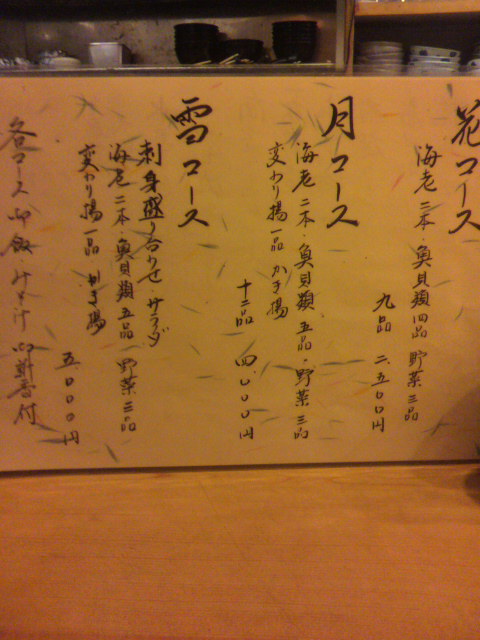 花コース
海老二本・魚貝類四品 野菜三品
九品 二、五〇〇円
月コース
海老二本・魚貝類五品・野菜三品
変わり揚一品 かき揚
十二品 四、〇〇〇円
雪コース
刺身盛り合わせ サラダ
海老二本・魚貝類五品 野菜三品
変わり揚一品 かき揚
五、〇〇〇円
各コース 御飯 みそ汁 御新香付